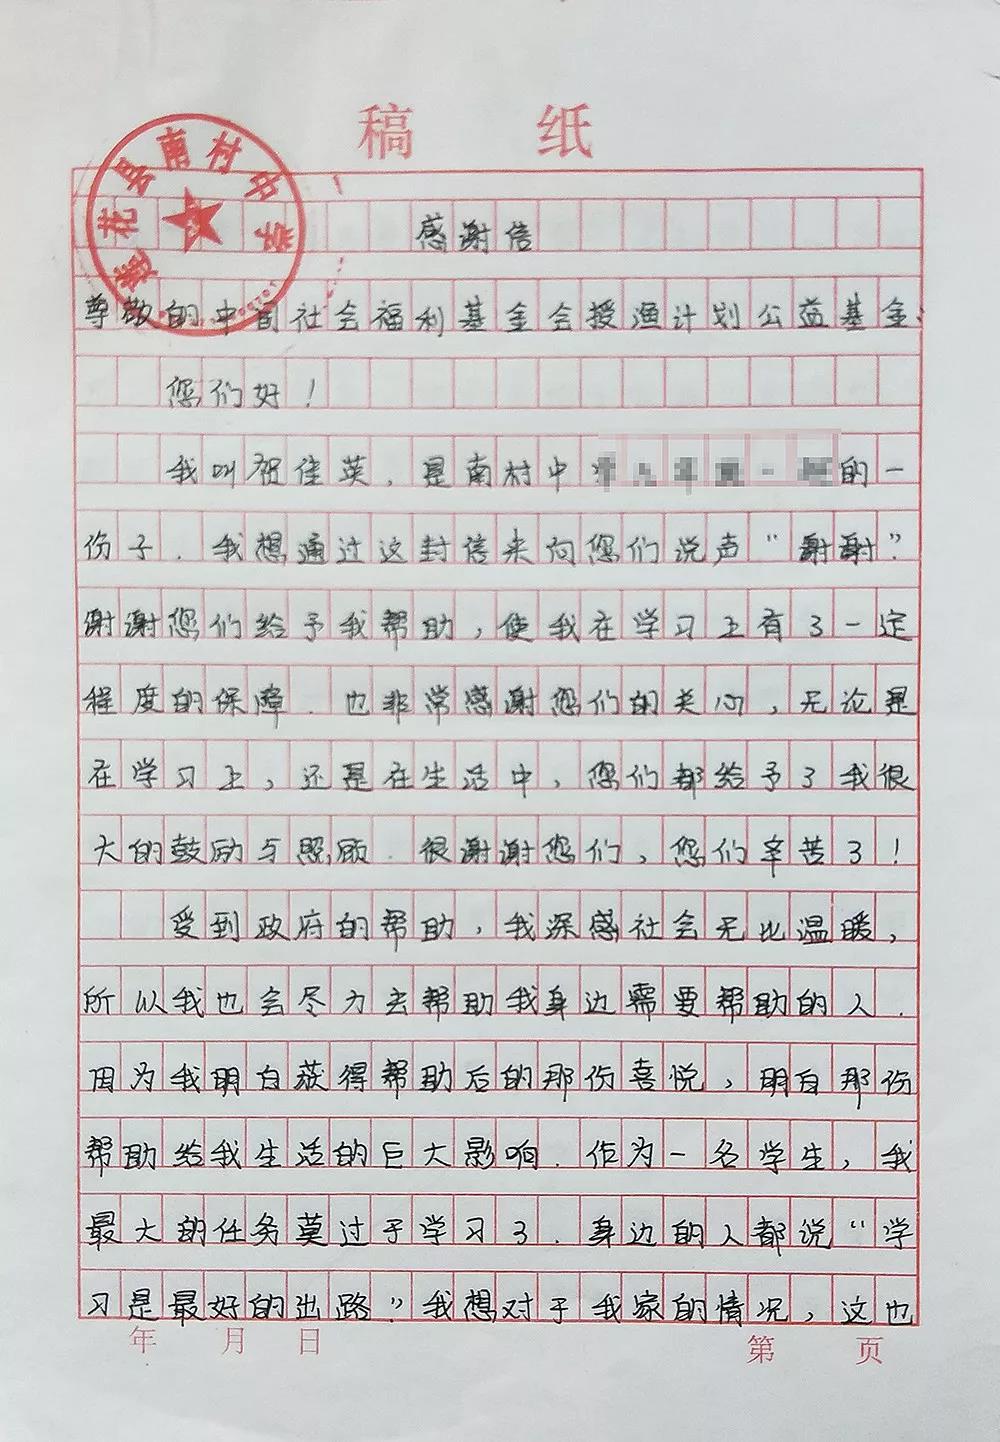 稿 纸
莲花县南村中学
感谢信
尊敬的中国社会福利基金会授渔计划公益基金:
您们好！
我叫贺佳英，是南村中 的一
份子．我想通过这封信来向您们说声“谢谢”．
谢谢您们给予我帮助，使我在学习上有了一定
程度的保障．也非常感谢您们的关心，无论是
在学习上，还是在生活中，您们都给予了我很
大的鼓励与照顾．很谢谢您们，您们辛苦了！
受到政府的帮助，我深感社会无比温暖，
所以我也会尽力去帮助我身边需要帮助的人．
因为我明白获得帮助后的那份喜悦，明白那份
帮助给我生活的巨大影响．作为一名学生，我
最大的任务莫过于学习了．身边的人都说“学
习是最好的出路”我想对于我家的情况，这也
年 月 日 第 页